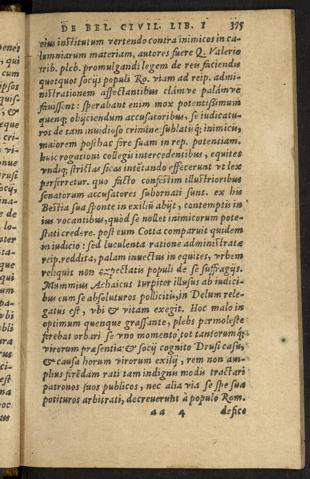 DE BEL. CIVIL. LIB. I 375
eius institutum vertendo contra inimicos in ca-
lumniarum materiam, autores fuere Q. Valerio
trib. pleb. promulgandi legem de reis faciendis
quotquot socijs populi Ro. viam ad reip. admi-
nistrationem affectantibus clàmve palámve
fauissent: sperabant enim mox potentissimum
quenq; obijciendum accusatoribus, se iudicatu-
ros de tam inuidioso crimine: sublatisq; inimicis,
maiorem posthac fore suam in rep. potentiam.
huic rogationi collegis intercedentibus, equites
vndiq; strictas sicas intētando effecerunt vt lex
perferretur. quo facto confestim illustrioribus
senatorum accusatores subornati sunt. ex his
Bestia sua sponte in exiliū abijt, contemptis in
ius vocantibus, quòd se nollet inimicorum pote-
stati credere. post eum Cotta comparuit quidem
in iudicio: sed luculenta ratione administratæ
reip. reddita, palam inuectus in equites, vrbem
reliquit non expectatis populi de se suffragijs.
Mummius Achaicus turpiter illusus ab iudici-
bus eum se absoluturos pollicitis, in Delum rele-
gatus est, vbi & vitam exegit. Hoc malo in
optimum quenque grassante, plebs permolestè
ferebat orbari se vno momento tot tantorumq;
virorum præsentia: & socij cognito Drusi casu,
& causa horum virorum exilij, rem non am-
plius ferēdam rati tam indignu modis tractari
patronos suos publicos, nec alia via se spe sua
potituros arbitrati, decreuerunt à populo Rom.
aa 4 defice